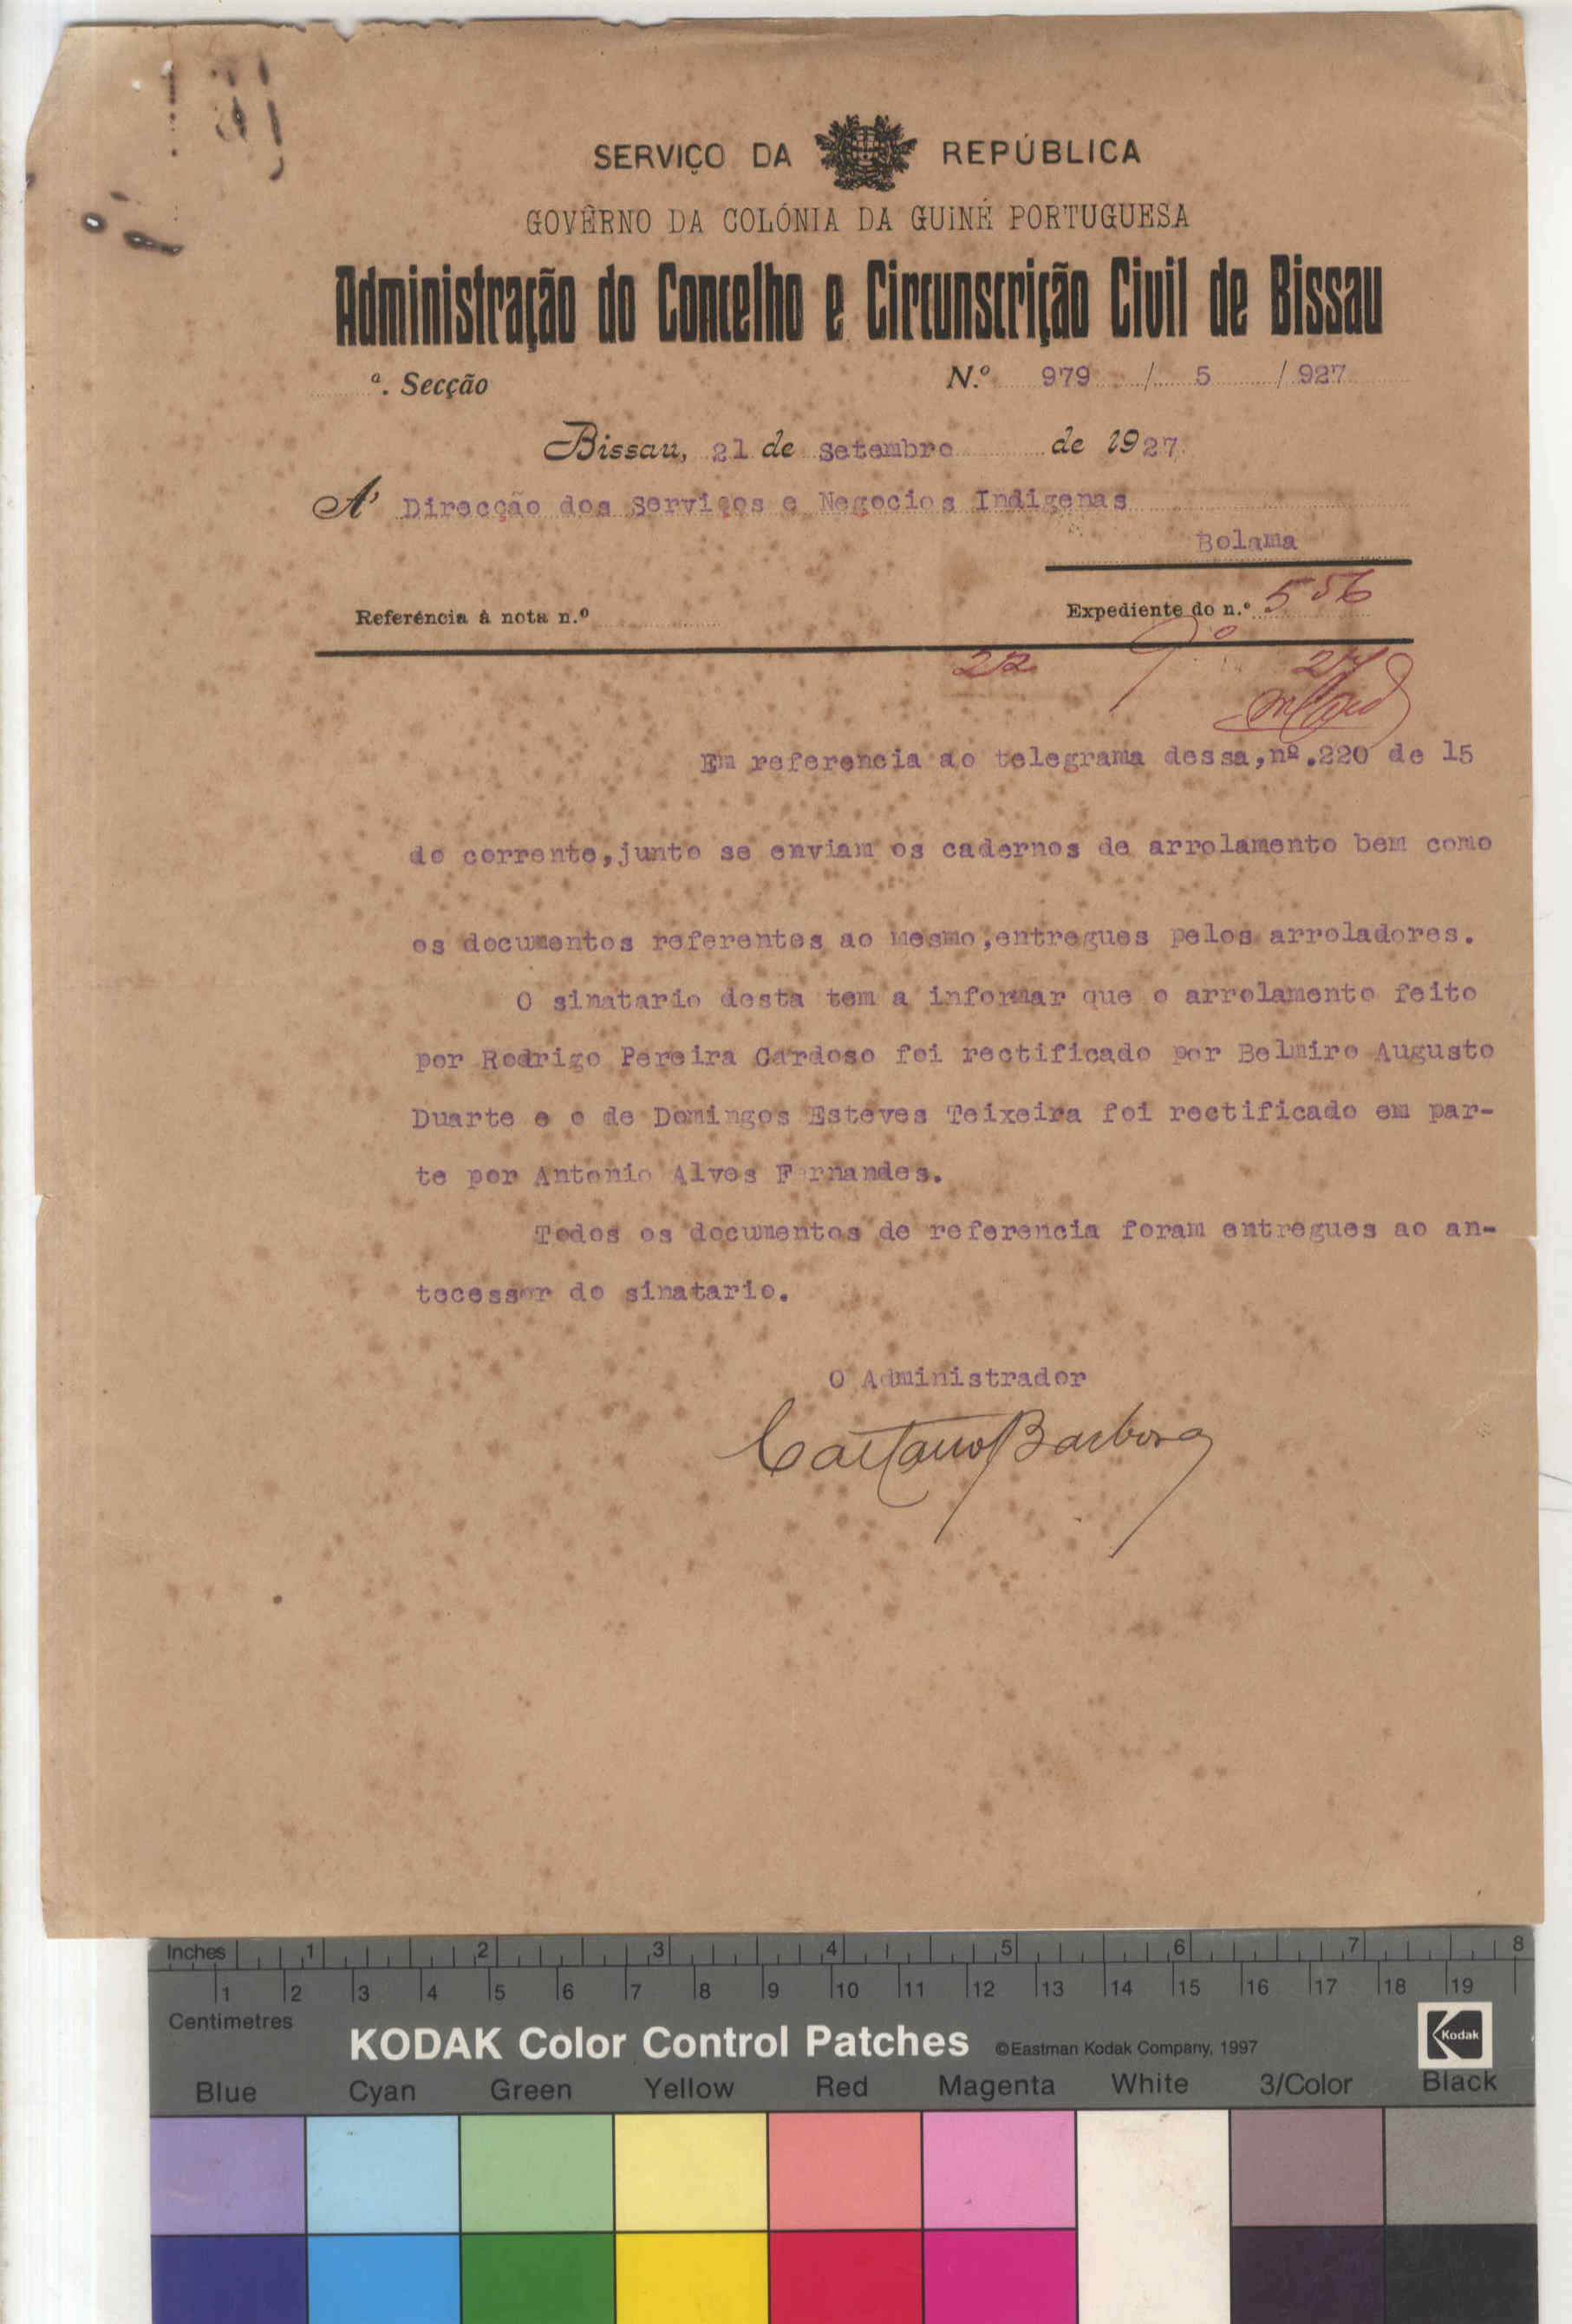 SERVIÇO DA REPÚBLICA
GOVÊRNO DA COLÓNIA DA GUINÉ PORTUGUESA
Administração do Concelho e Circunscrição Civil de Bissau
ª. Secção N.º 979 / 5 / 927
Bissau, 21 de Setembro de 1927
A' Direcção dos Serviços e Negocios Indigenas
Bolama
Referéncia à nota n.º Expediente do n.º 556
22 9.º 27
Em referencia ao telegrama dessa,nº.220 de 15
do corrente,junto se enviam os cadernos de arrolamento bem como
os documentos referentes ao mesmo,entregues pelos arroladores.
O sinatario desta tem a informar que o arrolamento feito
por Rodrigo Pereira Cardoso foi rectificado por Belmiro Augusto
Duarte e o de Domingos Esteves Teixeira foi rectificado em par-
te por Antonio Alves Fernandes.
Todos os documentos de referencia foram entregues ao an-
tecessor do sinatario.
O Administrador
Caetano Barbosa
Inches 1 2 3 4 5 6 7 8
1 2 3 4 5 6 7 8 9 10 11 12 13 14 15 16 17 18 19
Centimetres
KODAK Color Control Patches ©Eastman Kodak Company, 1997 Kodak
Blue Cyan Green Yellow Red Magenta White 3/Color Black